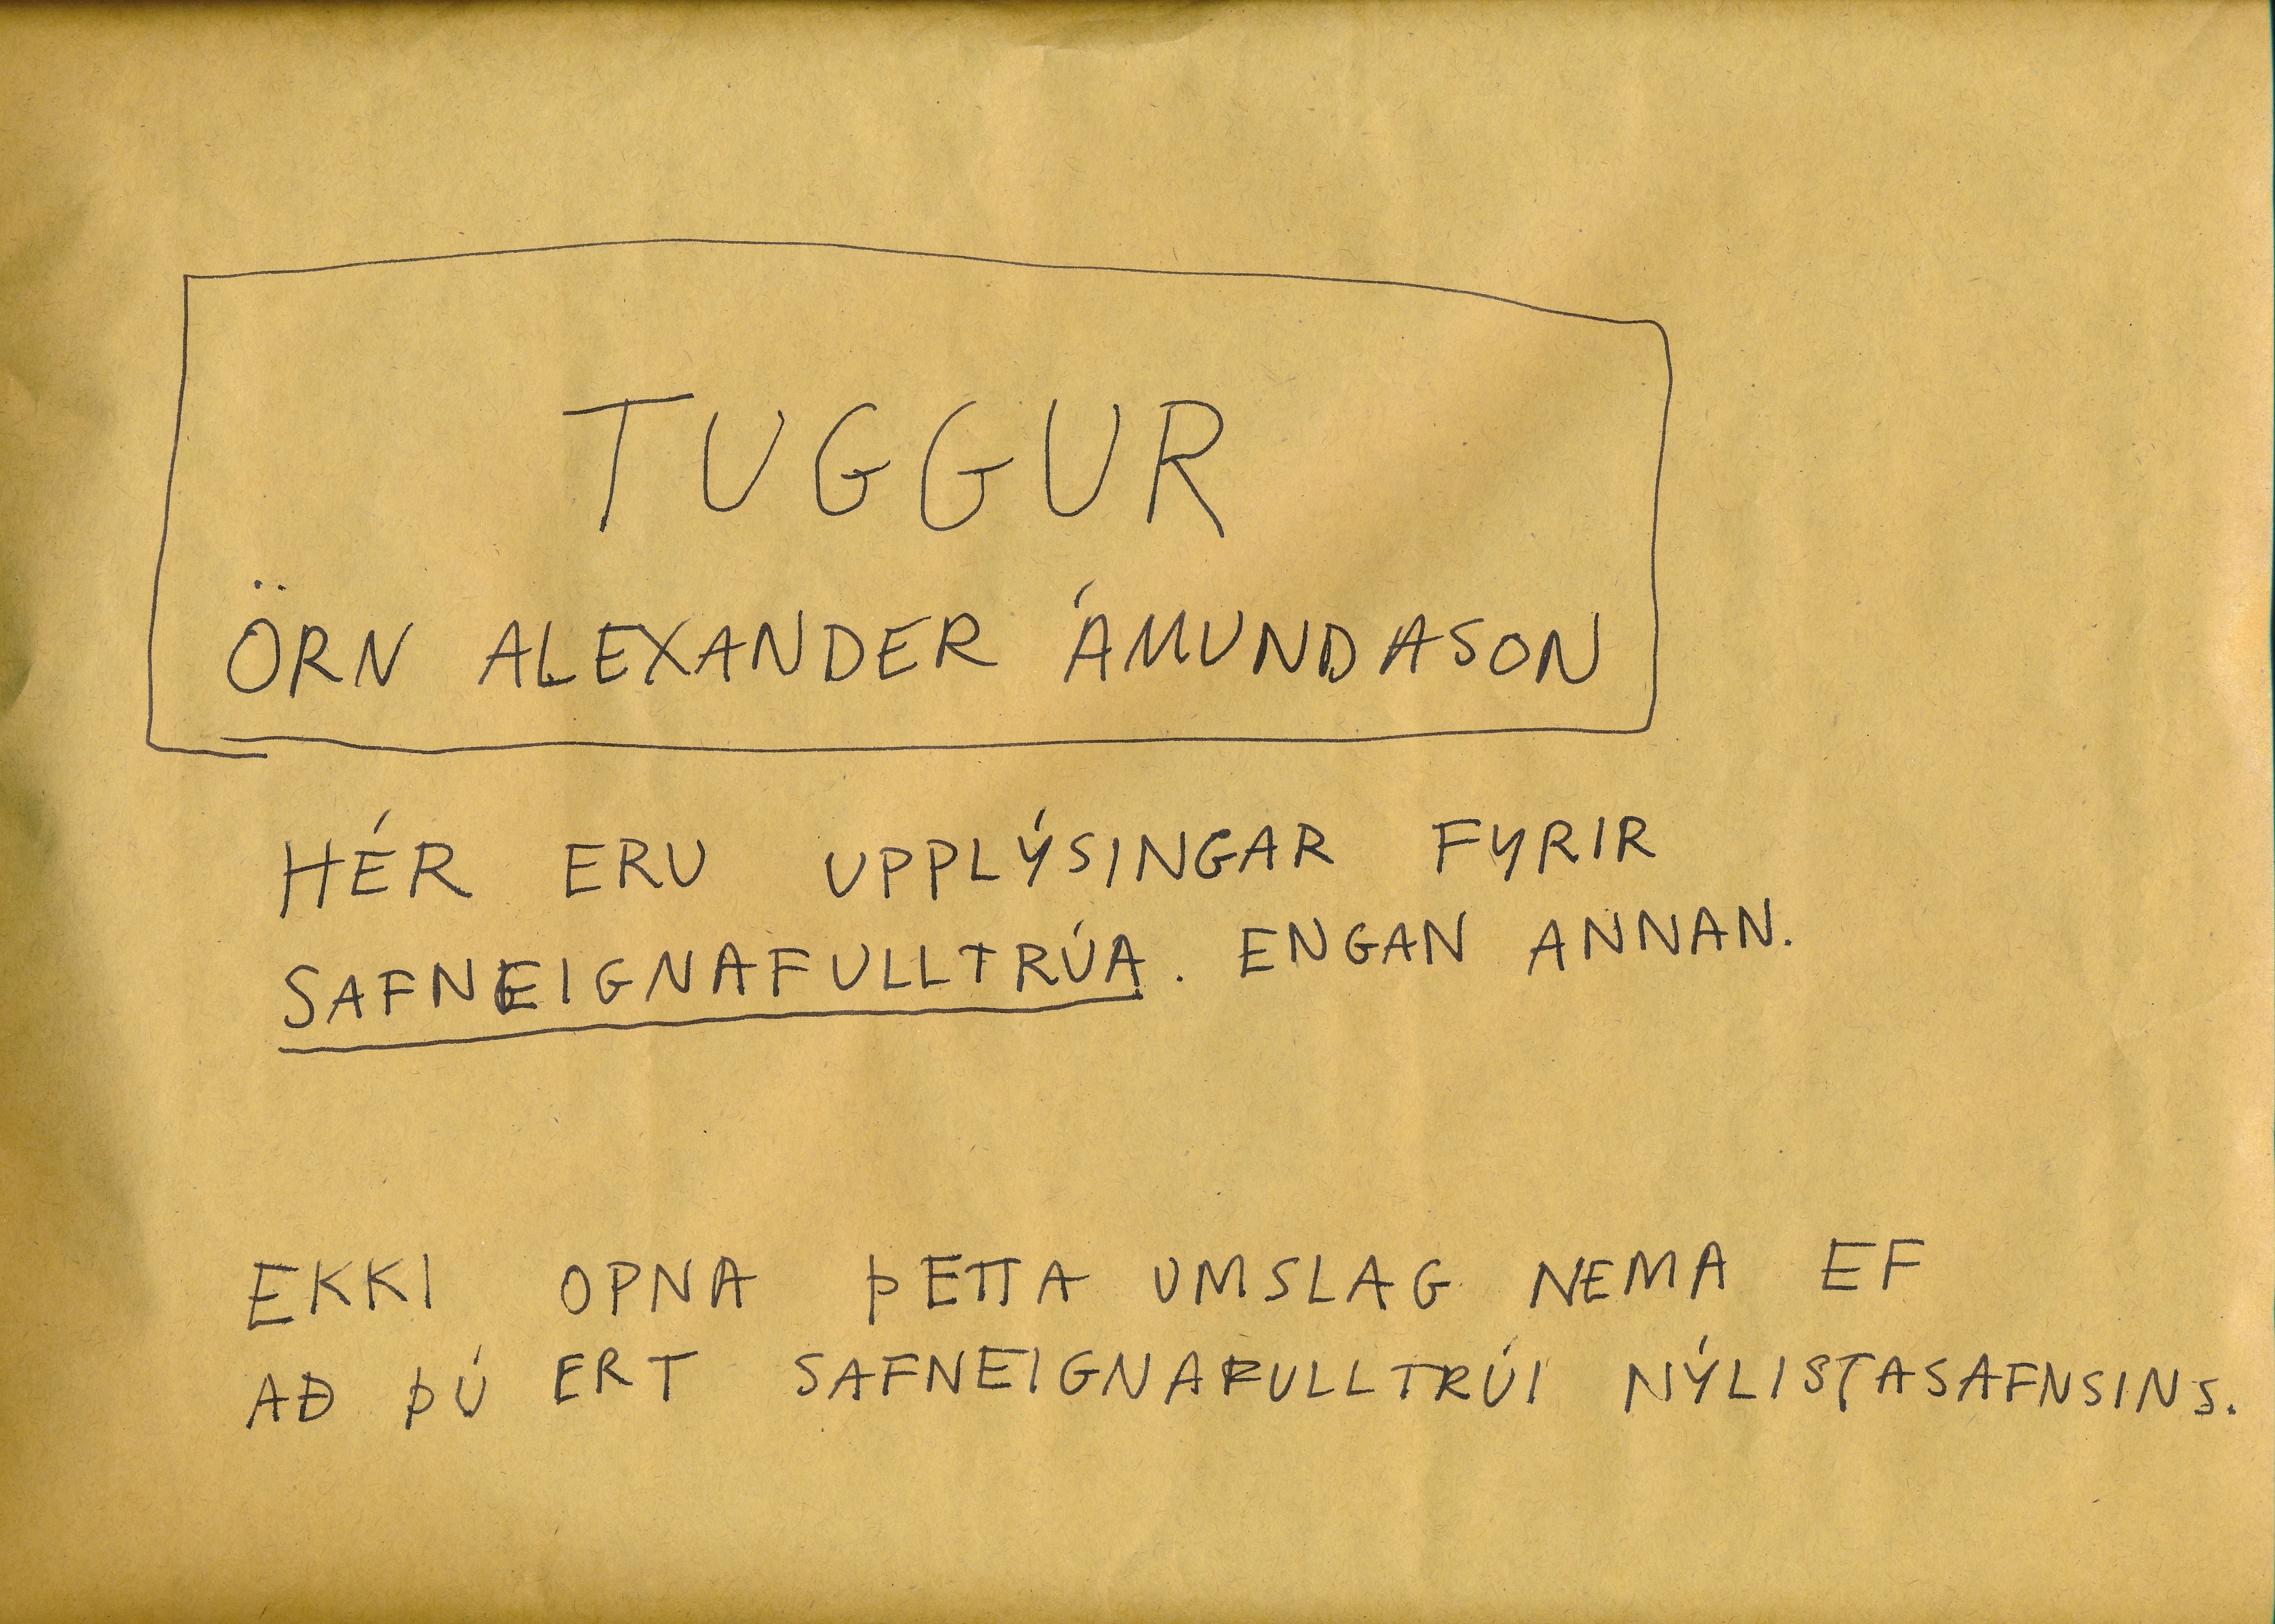 TUGGUR
ÖRN ALEXANDER ÁMUNDASON
HÉR ERU UPPLÝSINGAR FYRIR
SAFNEIGNAFULLTRÚA. ENGAN ANNAN.
EKKI OPNA ÞETTA UMSLAG NEMA EF
AÐ ÞÚ ERT SAFNEIGNAFULLTRÚI NÝLISTASAFNSINS.